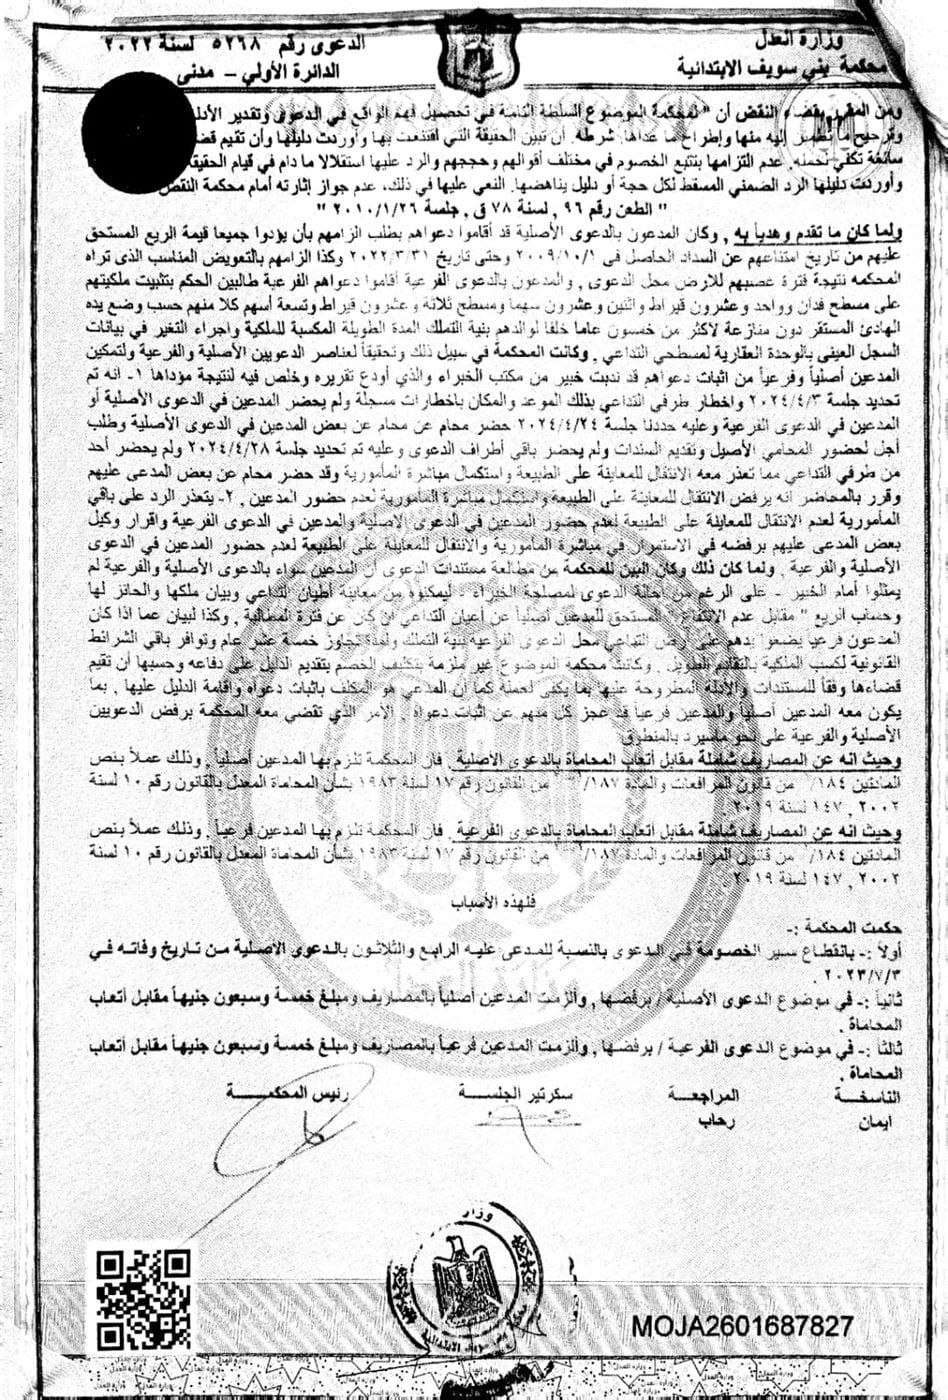 وزارة العدل
محكمة بني سويف الابتدائية
الدعوى رقم ٥٢٦٨ لسنة ٢٠٢٢
الدائرة الأولي – مدنى
ومن المقرر بقضاء النقض أن " لمحكمة الموضوع السلطة التامة في تحصيل فهم الواقع في الدعوى وتقدير الأدلة
وترجيح ما تطمئن إليه منها وإطراح ما عداها, شرطه, أن تبين الحقيقة التي اقتنعت بها وأوردت دليلها وأن تقيم
سائغة تكفي لحمله, عدم التزامها بتتبع الخصوم في مختلف أقوالهم وحججهم والرد عليها استقلالا ما دام في قيام الحقيقة
وأوردت دليلها الرد الضمني المسقط لكل حجة أو دليل يناهضها, النعي عليها في ذلك, عدم جواز إثارته أمام محكمة النقض
" الطعن رقم ٩٦ , لسنة ٧٨ ق , جلسة ٢٠١٠/١/٢٦ "
ولما كان ما تقدم وهدياً به , وكان المدعون بالدعوى الأصلية قد أقاموا دعواهم بطلب الزامهم بأن يؤدوا جميعا قيمة الريع المستحق
عليهم من تاريخ امتناعهم عن السداد الحاصل في ٢٠٠٩/١٠/١ وحتى تاريخ ٢٠٢٢/٣/٣١ وكذا الزامهم بالتعويض المناسب الذى تراه
المحكمه نتيجة فترة غصبهم للارض محل الدعوى , والمدعون بالدعوى الفرعية أقاموا دعواهم الفرعية طالبين الحكم بتثبيت ملكيتهم
على مسطح فدان وواحد وعشرون قيراط واثنين وعشرون سهما ومسطح ثلاثة وعشرون قيراط وتسعة أسهم كلا منهم حسب وضع يده
الهادئ المستقر دون منازعة لاكثر من خمسون عاما خلفا لوالدهم بنية التملك المدة الطويلة المكسبة للملكية واجراء التغير في بيانات
السجل العينى بالوحدة العقارية لمسطحي التداعي , وكانت المحكمة في سبيل ذلك وتحقيقاً لعناصر الدعويين الأصلية والفرعية ولتمكين
المدعين أصلياً وفرعياً من اثبات دعواهم قد ندبت خبير من مكتب الخبراء والذي أودع تقريره وخلص فيه لنتيجة مؤداها ١- انه تم
تحديد جلسة ٢٠٢٤/٤/٣ واخطار طرفي التداعي بذلك الموعد والمكان باخطارات مسجلة ولم يحضر المدعين في الدعوى الأصلية أو
المدعين في الدعوى الفرعية وعليه حددنا جلسة ٢٠٢٤/٤/٢٤ حضر محام عن محام عن بعض المدعين في الدعوى الأصلية وطلب
أجل لحضور المحامي الأصيل وتقديم السندات ولم يحضر باقي أطراف الدعوى وعليه تم تحديد جلسة ٢٠٢٤/٤/٢٨ ولم يحضر أحد
من طرفي التداعي مما تعذر معه الانتقال للمعاينة على الطبيعة واستكمال مباشرة المأمورية وقد حضر محام عن بعض المدعى عليهم
وقرر بالمحاضر انه يرفض الانتقال للمعاينة على الطبيعة واستكمال مباشرة المأمورية لعدم حضور المدعين , ٢- يتعذر الرد على باقي
المأمورية لعدم الانتقال للمعاينة على الطبيعة لعدم حضور المدعين في الدعوى الاصلية والمدعين في الدعوى الفرعية واقرار وكيل
بعض المدعى عليهم برفضه في الاستمرار في مباشرة المأمورية والانتقال للمعاينة على الطبيعة لعدم حضور المدعين في الدعوى
الأصلية والفرعية , ولما كان ذلك وكان البين للمحكمة من مطالعة مستندات الدعوى أن المدعين سواء بالدعوى الأصلية والفرعية لم
يمثلوا أمام الخبير - على الرغم من إحالة الدعوى لمصلحة الخبراء - ليمكنوه من معاينة أطيان التداعي وبيان ملكها والحائز لها
وحساب الريع " مقابل عدم الانتفاع " المستحق للمدعين أصلياً عن أعيان التداعي ان كان عن فترة المطالبة , وكذا لبيان عما اذا كان
المدعون فرعياً بضعوا يدهم على أرض التداعي محل الدعوى الفرعية بنية التملك ولمدة تجاوز خمسة عشر عام وتوافر باقي الشرائط
القانونية لكسب الملكية بالتقادم الطويل , وكانت محكمة الموضوع غير ملزمة بتكليف الخصم بتقديم الدليل على دفاعه وحسبها أن تقيم
قضاءها وفقاً للمستندات والأدلة المطروحة عليها بما يكفى لحمله كما أن المدعي هو المكلف باثبات دعواه وإقامة الدليل عليها , بما
يكون معه المدعين أصلياً والمدعين فرعياً قد عجز كل منهم عن اثبات دعواه , الأمر الذي تقضي معه المحكمة برفض الدعويين
الأصلية والفرعية على نحو ماسيرد بالمنطوق
وحيث انه عن المصاريف شاملة مقابل أتعاب المحاماة بالدعوى الأصلية , فان المحكمة تلزم بها المدعين أصلياً , وذلك عملاً بنص
المادتين ١٨٤/ من قانون المرافعات والمادة ١٨٧/ من القانون رقم ١٧ لسنة ١٩٨٣ بشأن المحاماة المعدل بالقانون رقم ١٠ لسنة
٢٠٠٢ , ١٤٧ لسنة ٢٠١٩ .
وحيث انه عن المصاريف شاملة مقابل أتعاب المحاماة بالدعوى الفرعية , فان المحكمة تلزم بها المدعين فرعياً , وذلك عملاً بنص
المادتين ١٨٤/ من قانون المرافعات والمادة ١٨٧/ من القانون رقم ١٧ لسنة ١٩٨٣ بشأن المحاماة المعدل بالقانون رقم ١٠ لسنة
٢٠٠٢ , ١٤٧ لسنة ٢٠١٩ .
فلهذه الأسباب
حكمت المحكمة :-
أولاً :- بانقطاع سير الخصومة في الدعوى بالنسبة للمدعى عليه الرابع والثلاثون بالدعوى الاصلية من تاريخ وفاته في
٢٠٢٣/٧/٣ .
ثانياً :- في موضوع الدعوى الأصلية / برفضها , وألزمت المدعين أصلياً بالمصاريف ومبلغ خمسة وسبعون جنيهاً مقابل أتعاب
المحاماة .
ثالثاً :- في موضوع الدعوى الفرعية / برفضها , وألزمت المدعين فرعياً بالمصاريف ومبلغ خمسة وسبعون جنيهاً مقابل أتعاب
المحاماة .
الناسخة المراجعة سكرتير الجلسة رئيس المحكمة
ايمان رحاب
MOJA2601687827